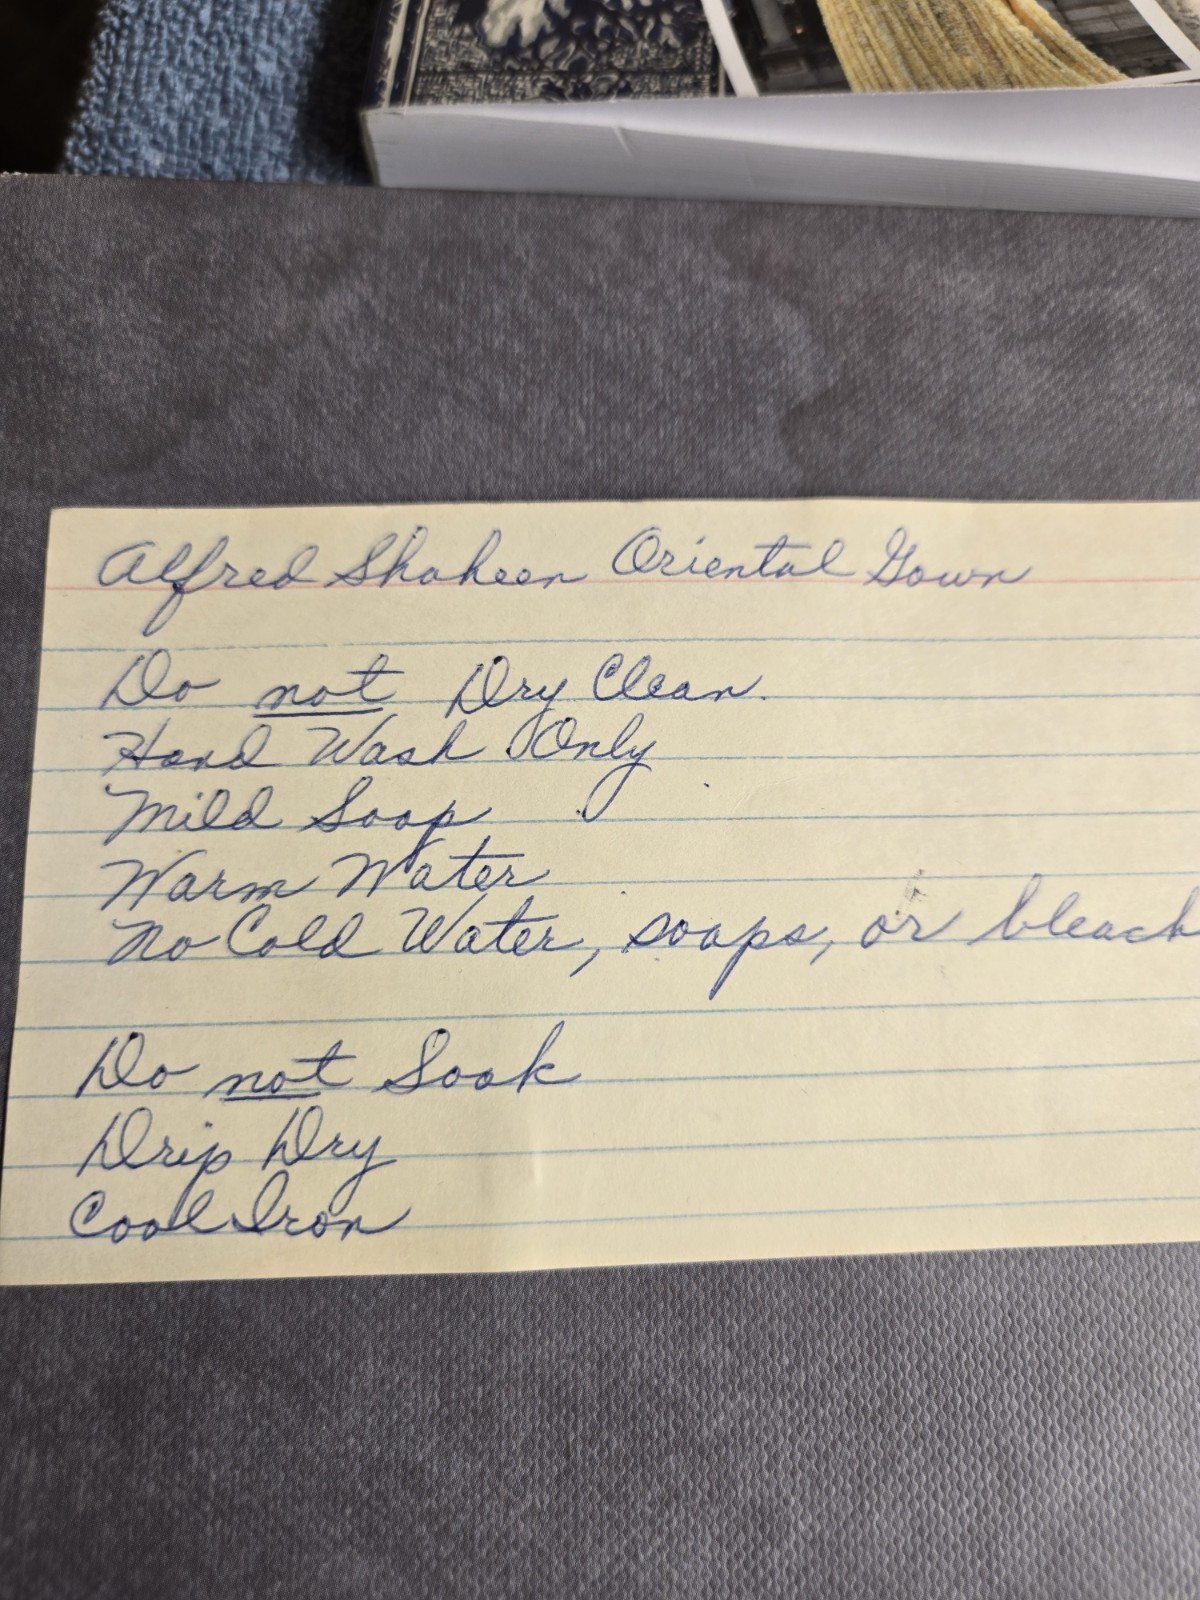 Alfred Shaheen Oriental Gown
Do not Dry Clean.
Hand Wash Only
Mild Soap
Warm Water
No Cold Water, soaps, or bleach
Do not Soak
Drip Dry
Cool Iron